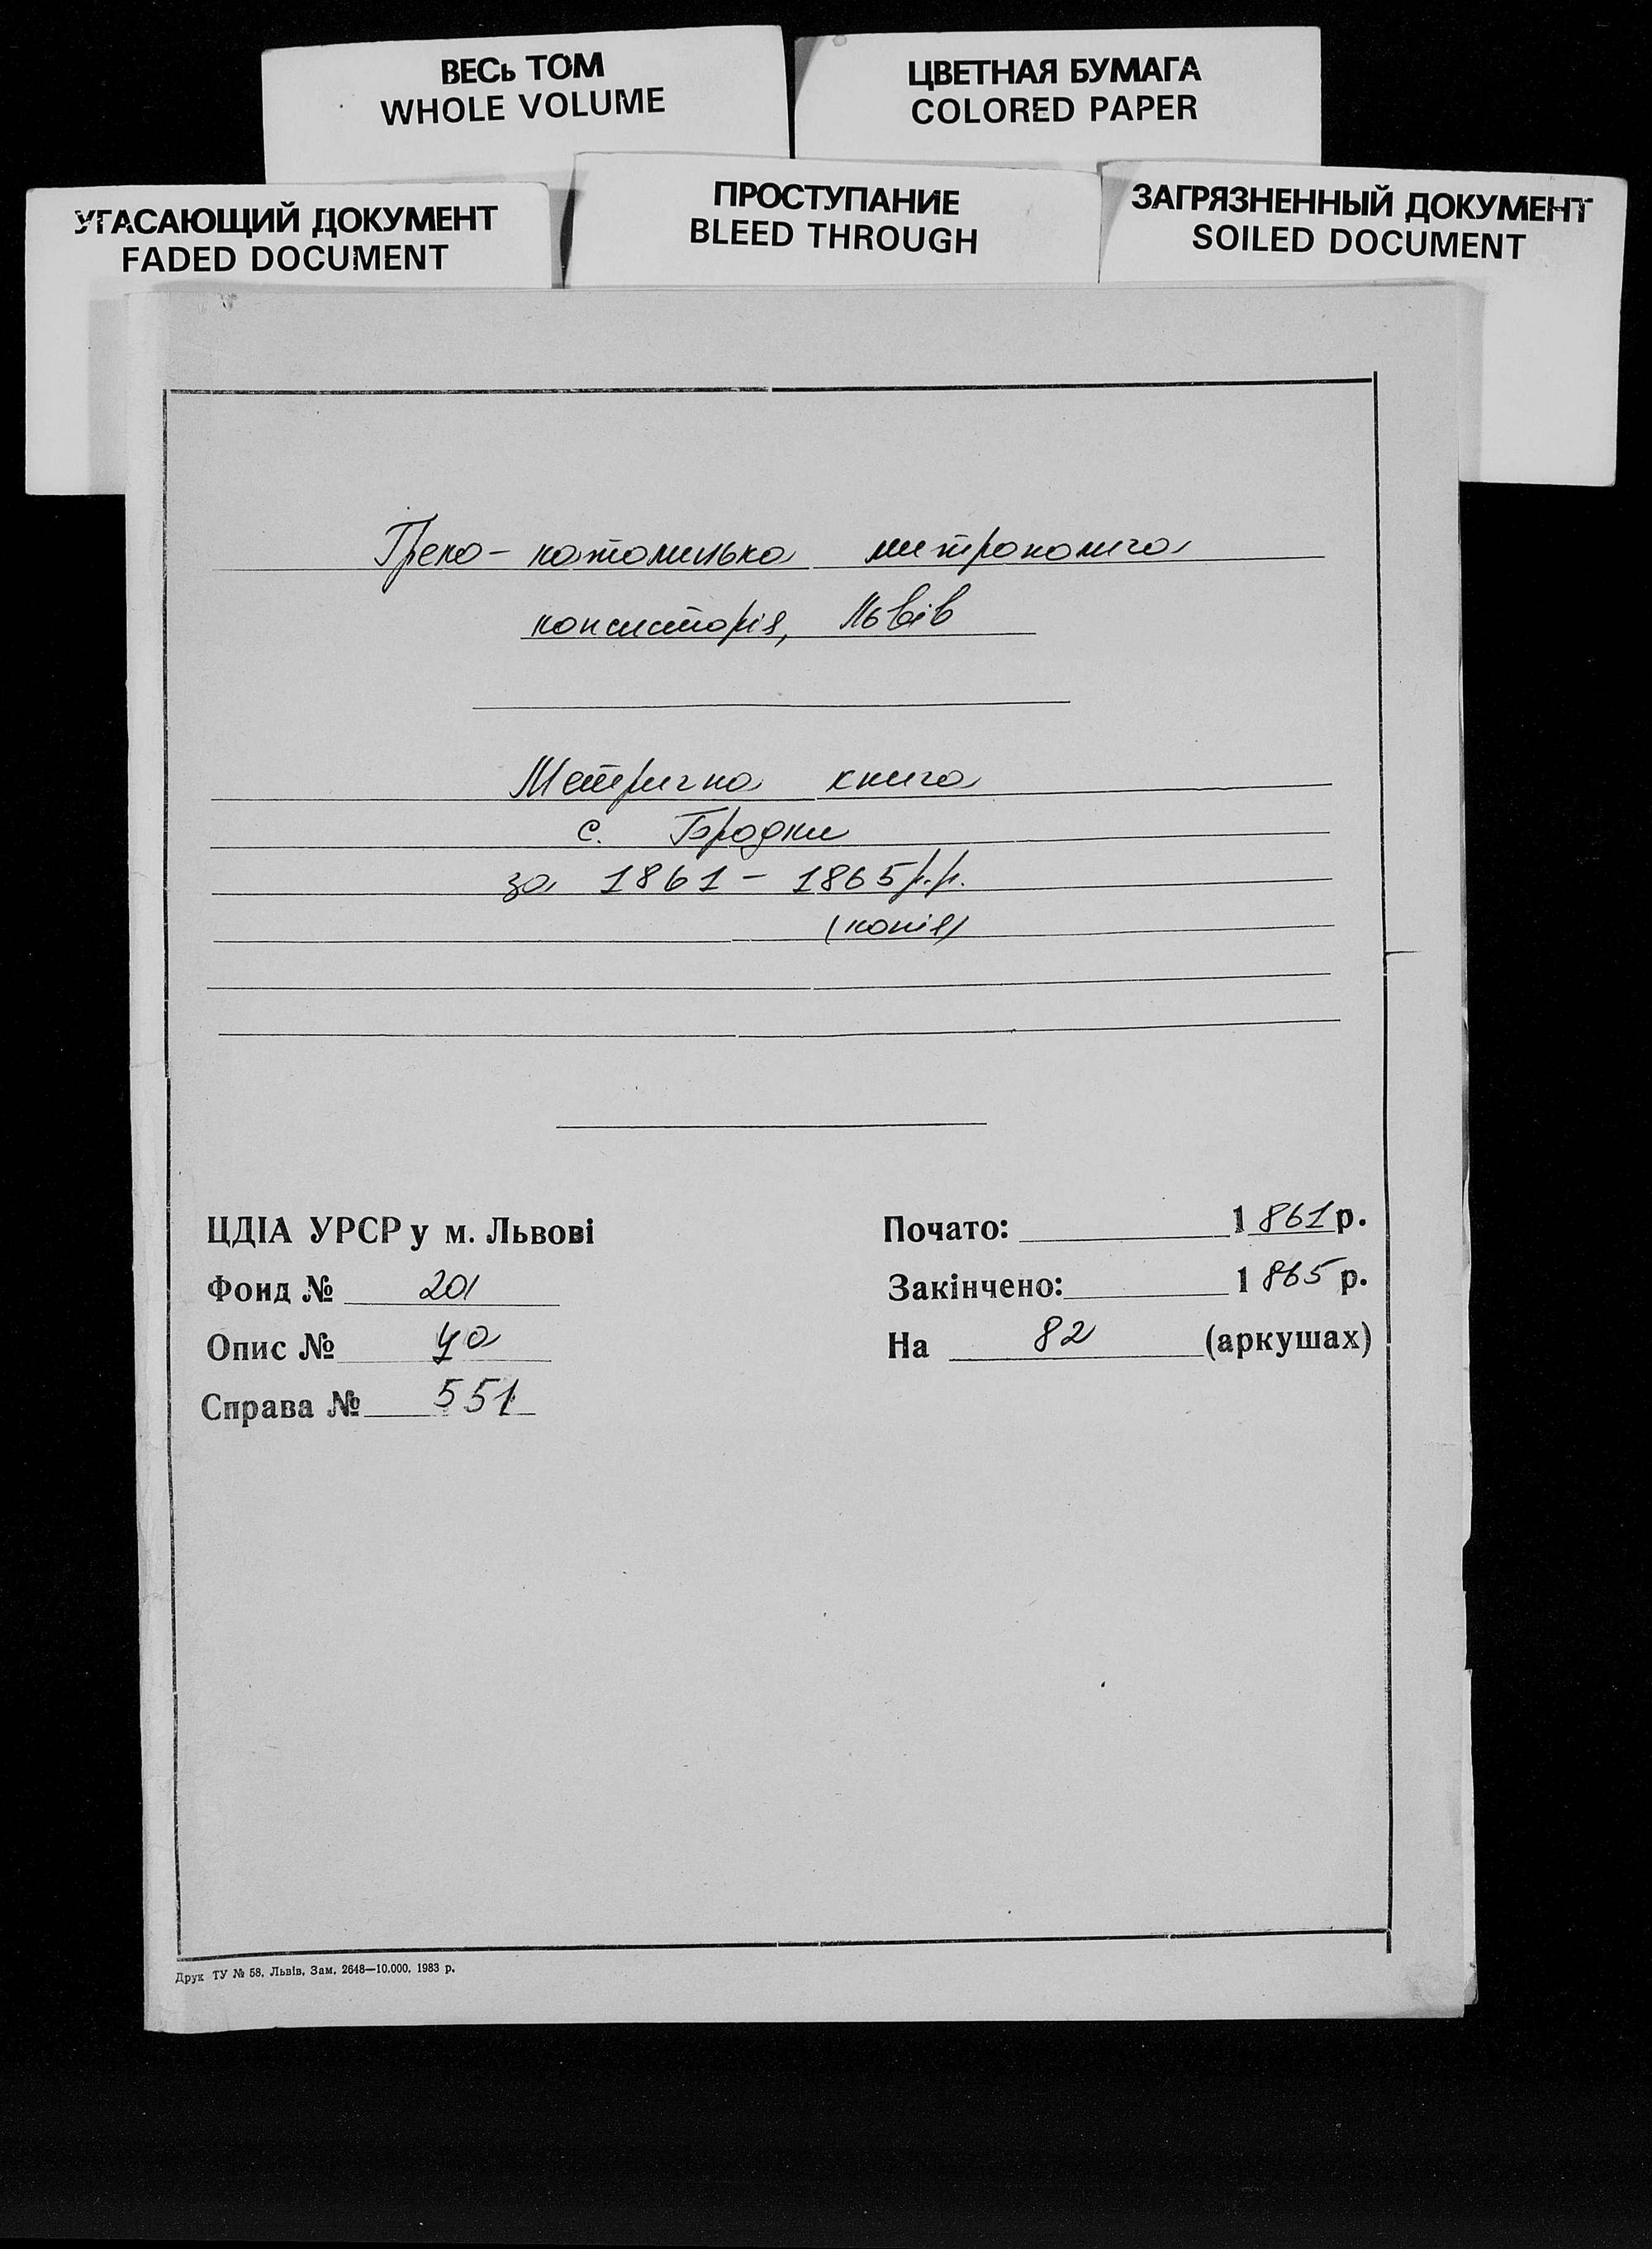 ВЕСЬ ТОМ
WHOLE VOLUME
ЦВЕТНАЯ БУМАГА
COLORED PAPER
УГАСАЮЩИЙ ДОКУМЕНТ
FADED DOCUMENT
ПРОСТУПАНИЕ
BLEED THROUGH
ЗАГРЯЗНЕННЫЙ ДОКУМЕНТ
SOILED DOCUMENT
Греко-католицька митрополича
консисторія, Львів
Метрична книга
с. Бродки
за 1861 - 1865 р.р.
(копія)
ЦДІА УРСР у м. Львові
Фонд № 201
Опис № 4а
Справа № 551
Почато: 1861 р.
Закінчено: 1865 р.
На 82 (аркушах)
Друк ТУ № 58. Львів. Зам. 2648—10.000. 1983 р.